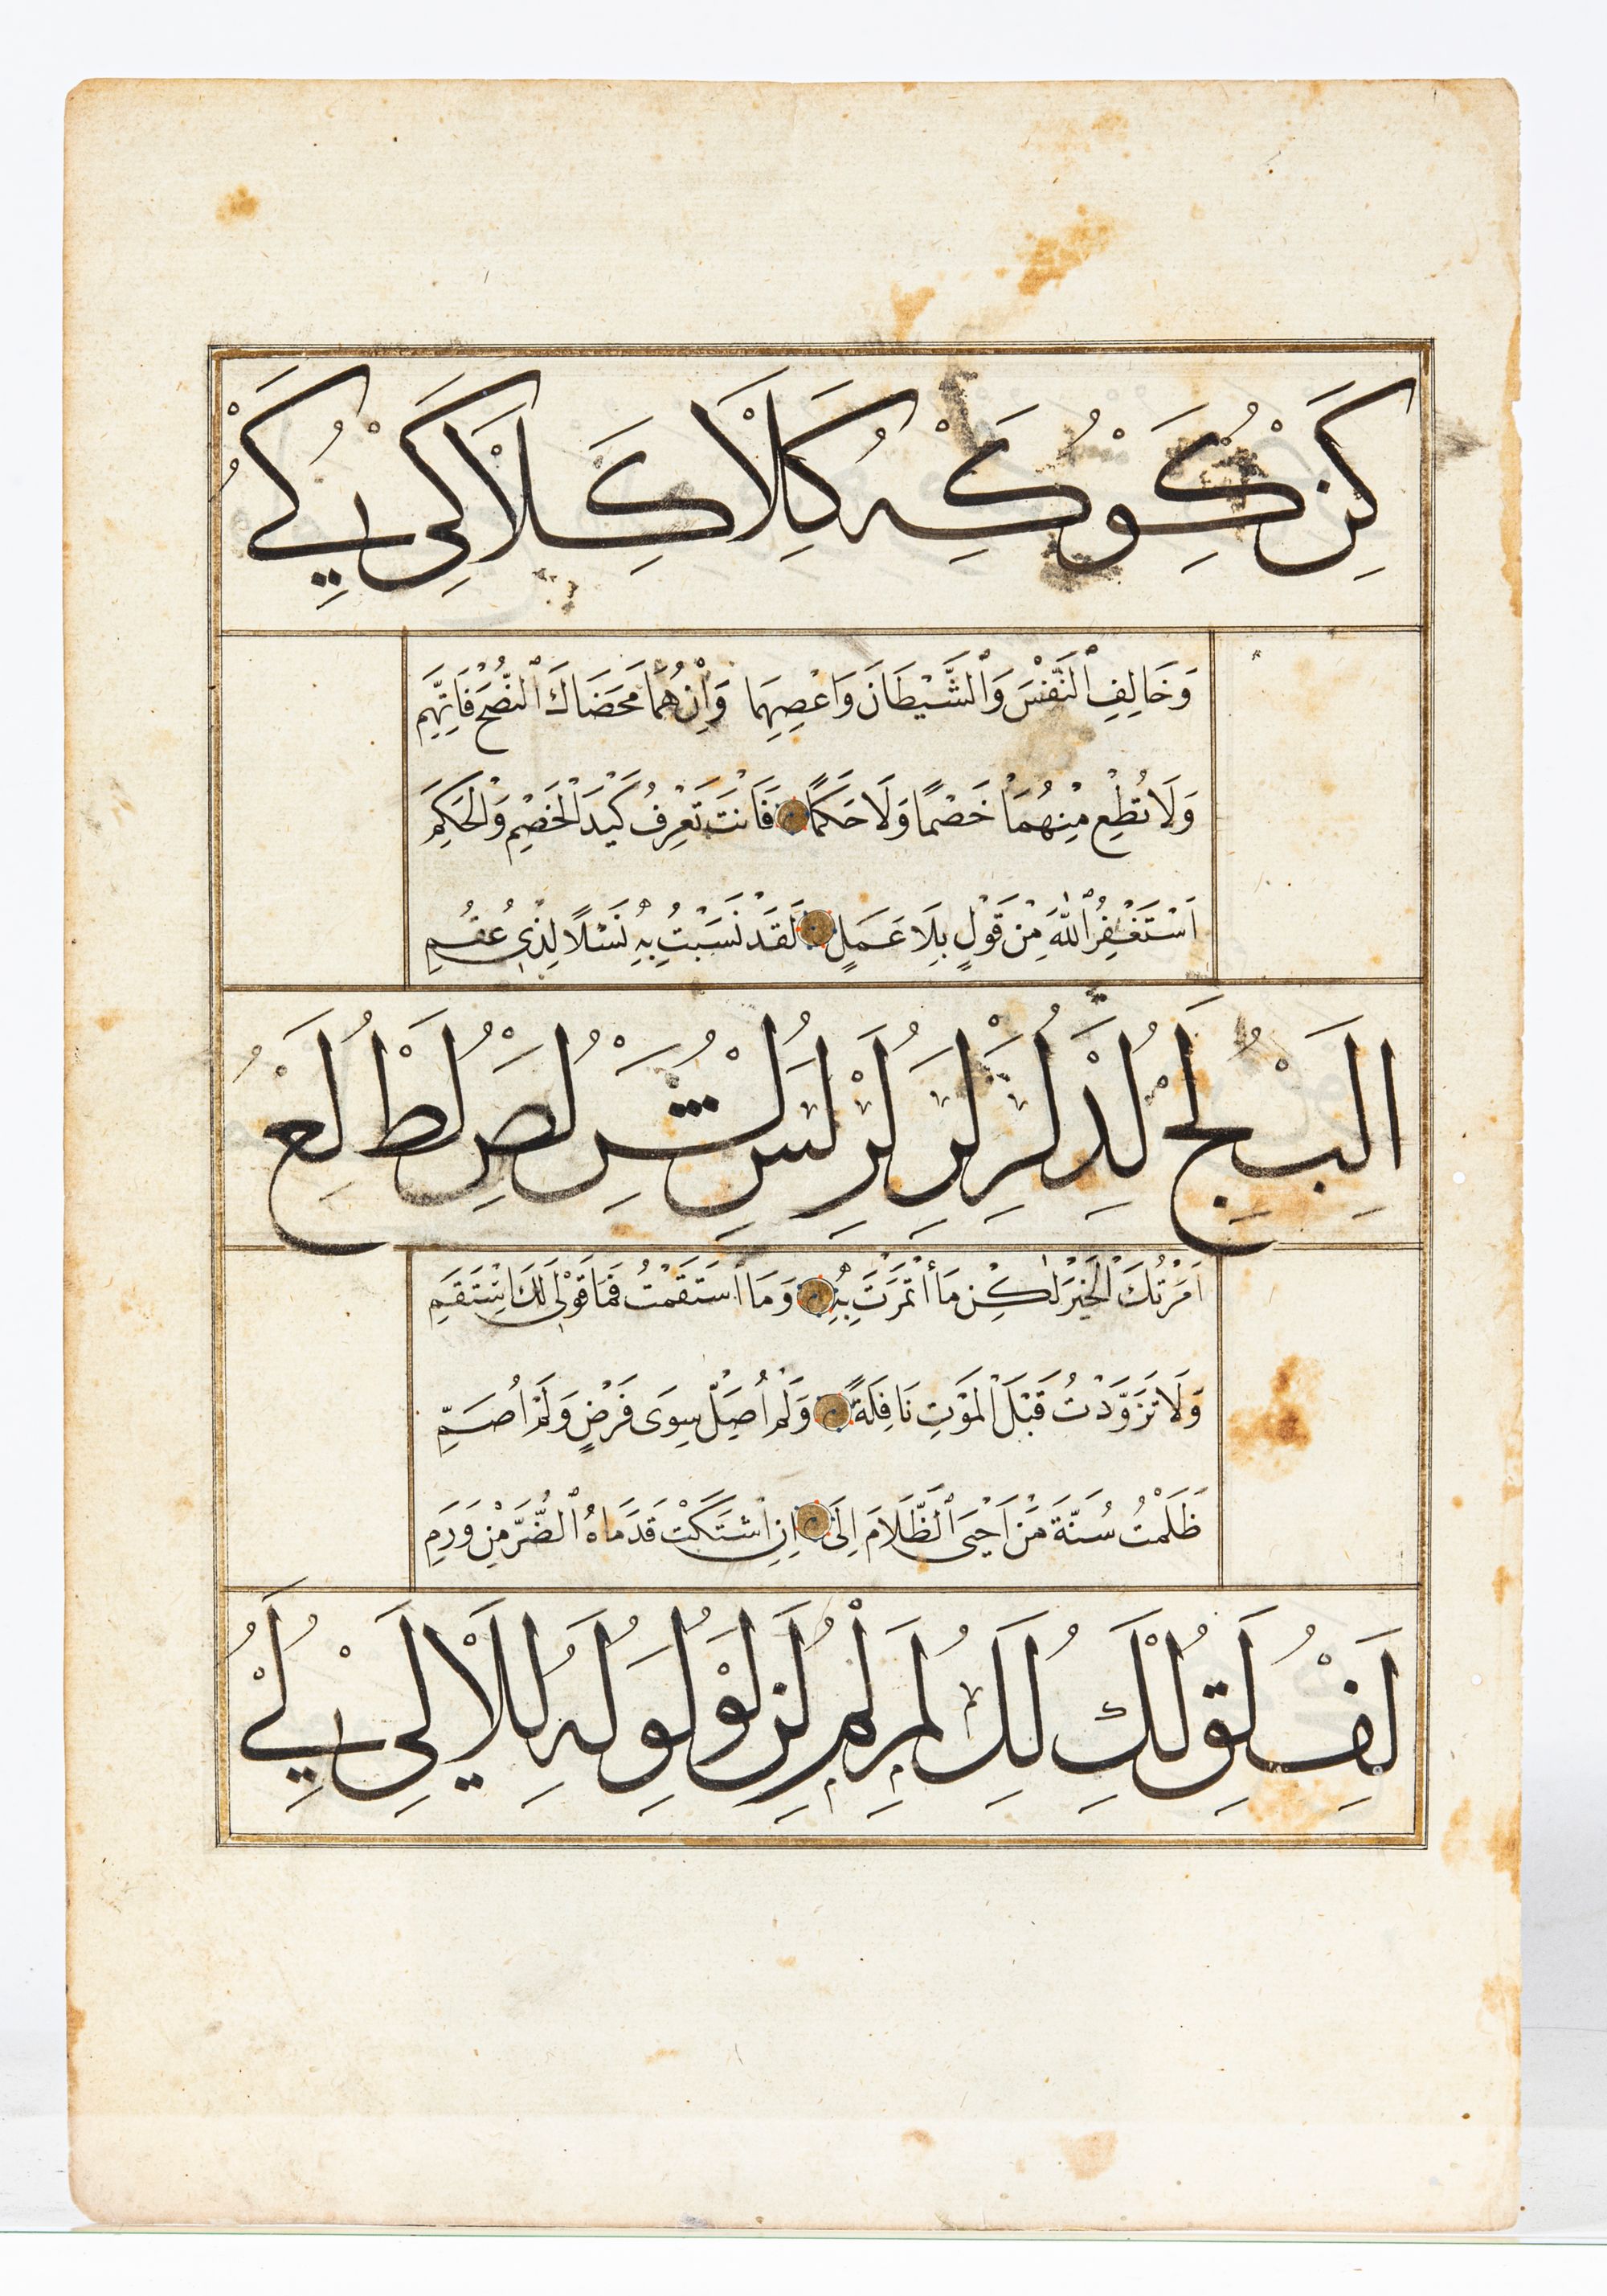 كن كو كه كلا كلا كى كے
وَخَالِفِ ٱلنَّفْسَ وَٱلشَّيْطَانَ وَاعْصِهِمَا وَاِنْ هُمَا مَحَضَاكَ ٱلنُّصْحَ فَاتَّهِمِ
وَلَا تُطِعْ مِنْهُمَا خَصْمًا وَلَا حَكَمًا فَاَنْتَ تَعْرِفُ كَيْدَ الْخَصْمِ وَالْحَكَمِ
اَسْتَغْفِرُ ٱللّٰهَ مِنْ قَوْلٍ بِلَا عَمَلٍ لَقَدْ نَسَبْتُ بِهِ نَسْلًا لِذِى عُقُمِ
الب لج لد لر لر لر لس لش لص لط لع
اَمَرْتُكَ الْخَيْرَ لٰكِنْ مَا أْتَمَرْتُ بِهِ وَمَا اسْتَقَمْتُ فَمَا قَوْلِى لَكَ اسْتَقِمِ
وَلَا تَزَوَّدْتُ قَبْلَ الْمَوْتِ نَافِلَةً وَلَمْ اُصَلِّ سِوَى فَرْضٍ وَلَمْ اَصُمِ
ظَلَمْتُ سُنَّةَ مَنْ اَحْيَى ٱلظَّلَامَ اِلَى اَنِ اشْتَكَتْ قَدَمَاهُ ٱلضُّرَّ مِنْ وَرَمِ
لف لق لك لك لم لم لن لو لو له للا لى لے